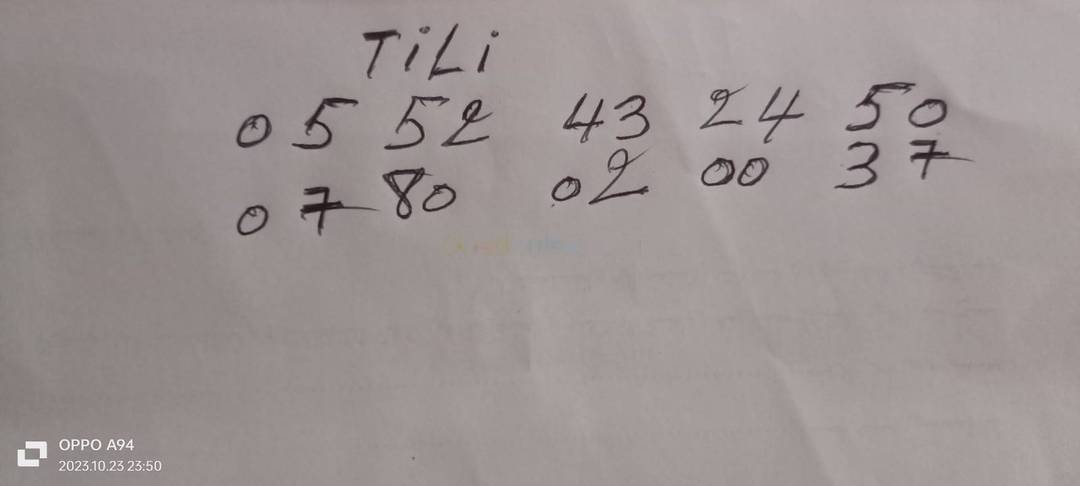 TiLi
05 52 43 24 50
07 80 02 00 37
OPPO A94
2023.10.23 23:50